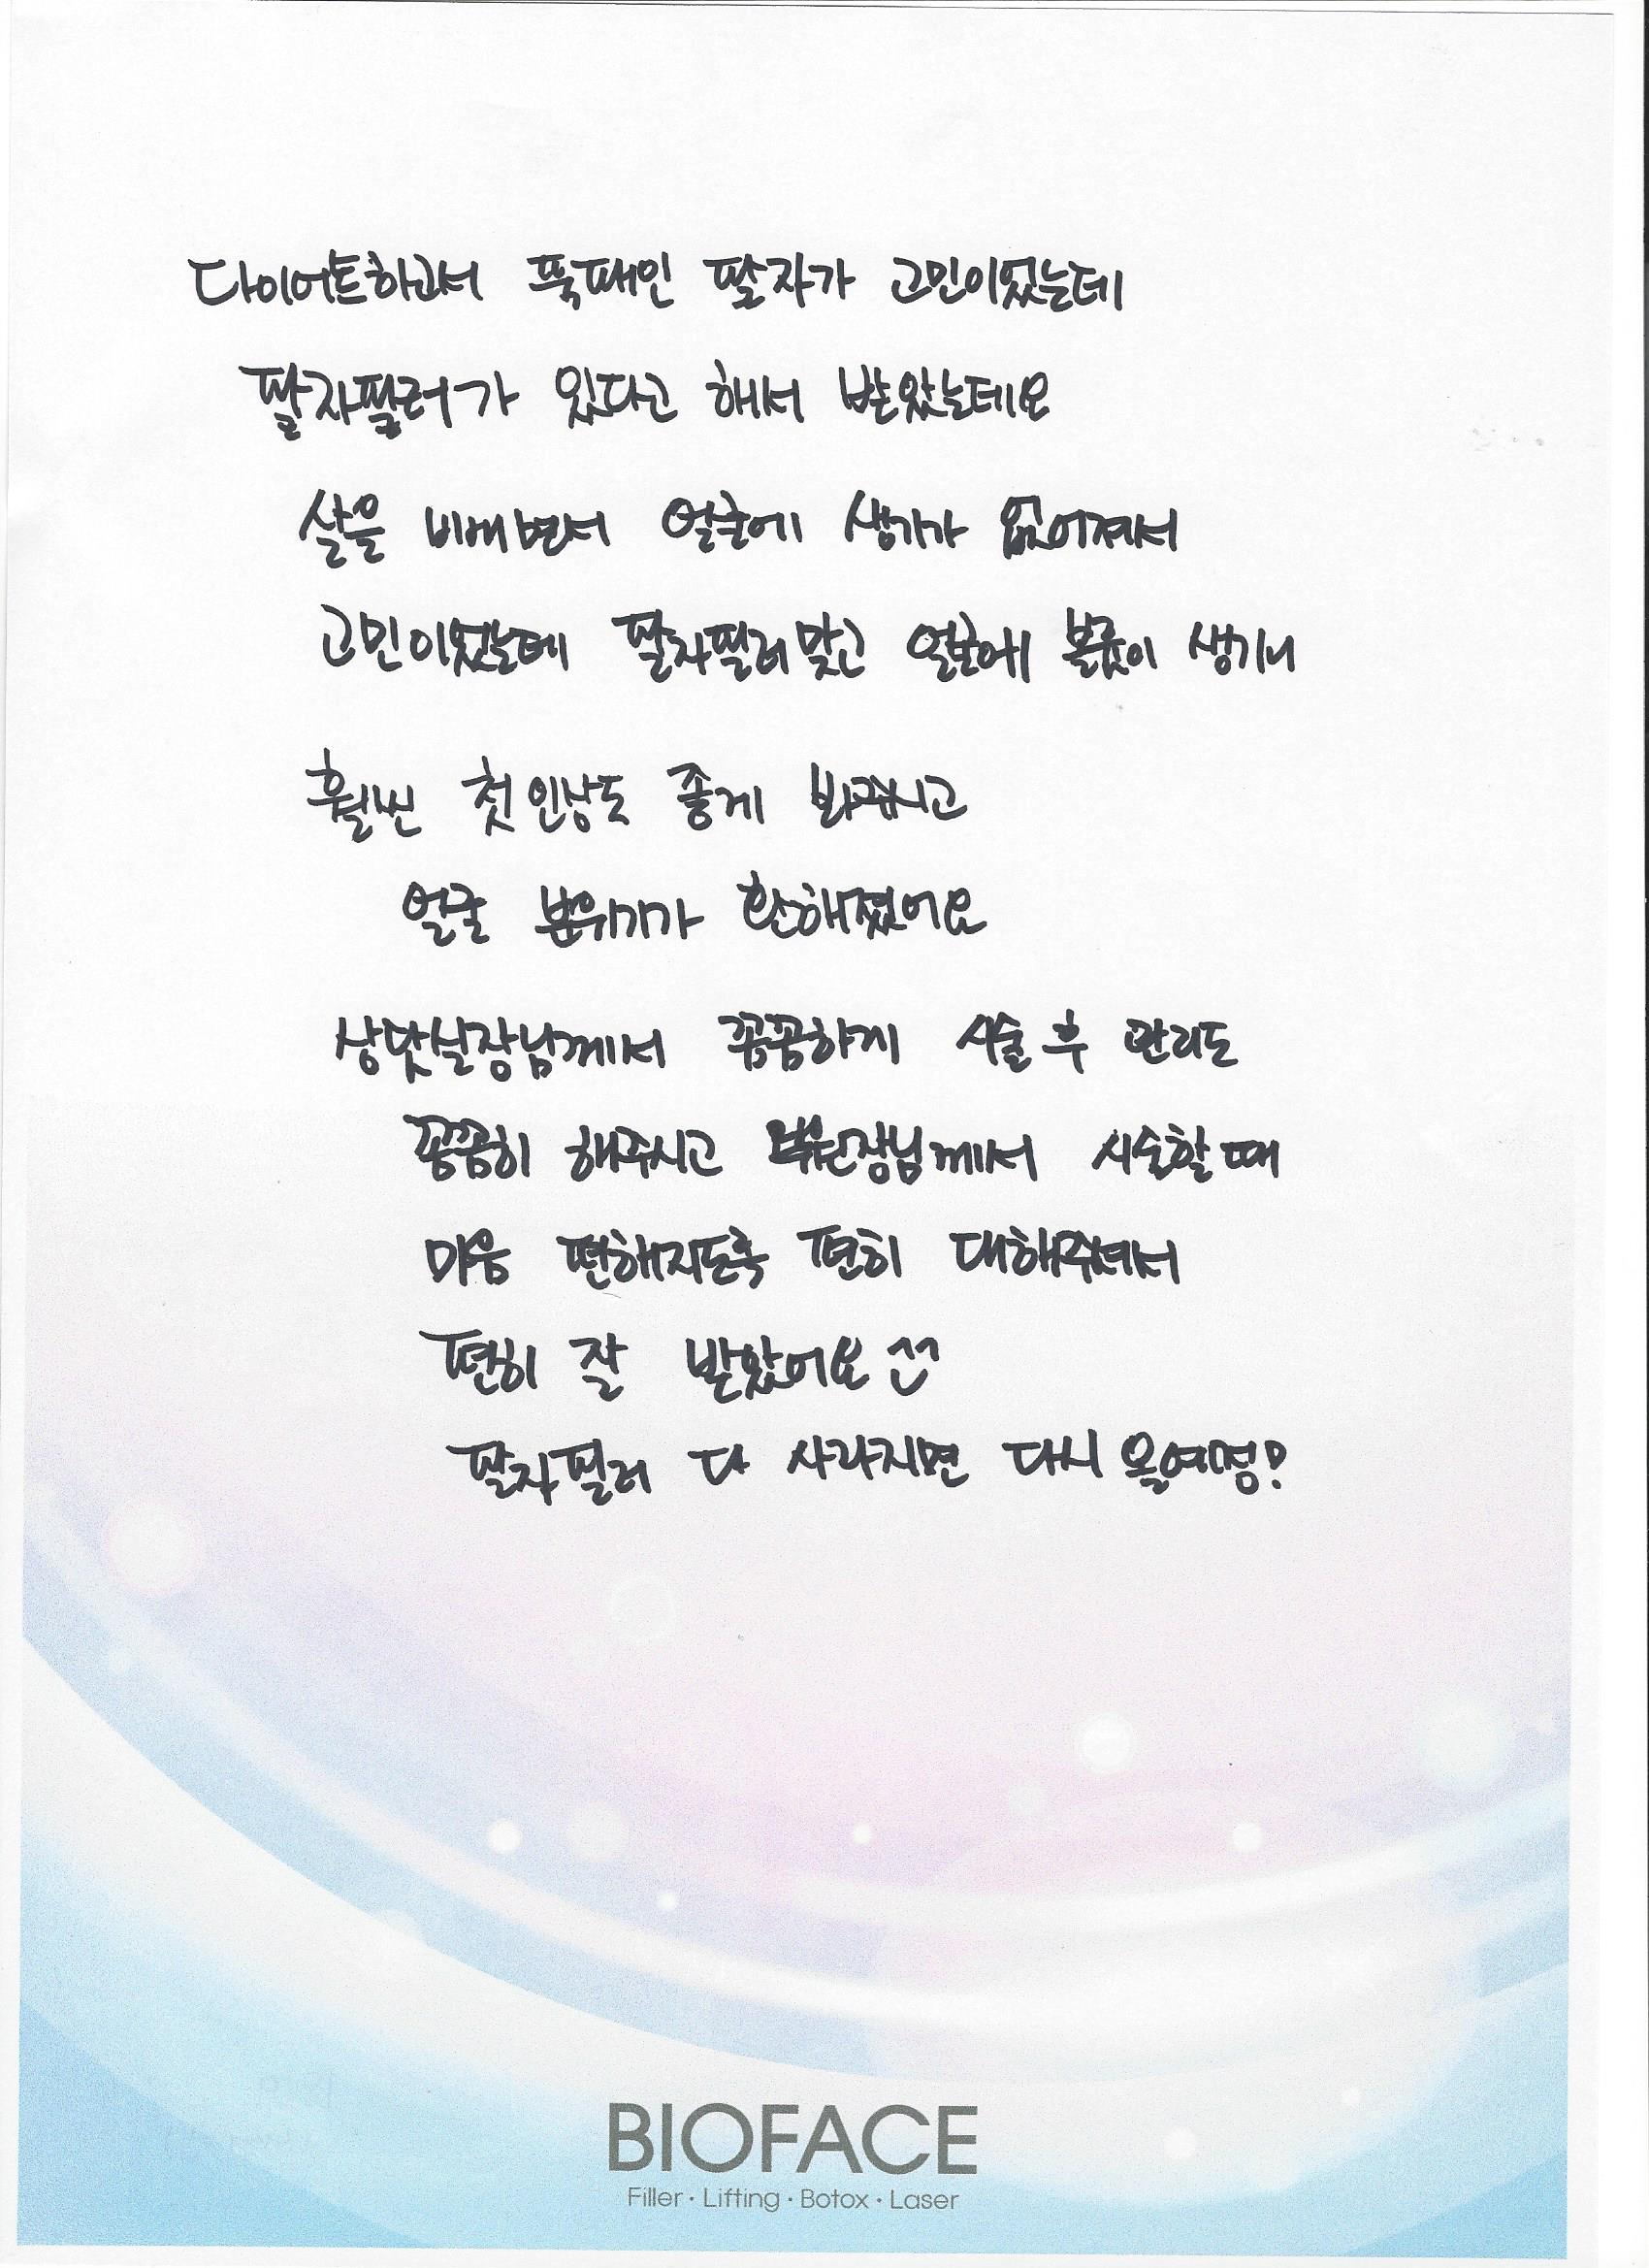 다이어트하고서 푹패인 팔자가 고민이었는데
팔자필러가 있다고 해서 받았는데요
살을 빼면서 얼굴에 생기가 없어져서
고민이었는데 팔자필러맞고 얼굴에 볼륨이 생기니
훨씬 첫인상도 좋게 봐주시고
얼굴 분위기가 환해졌어요
상담실장님께서 꼼꼼하게 시술 후 관리도
꼼꼼히 해주시고 시술할때
마음 편해지도록 편히 대해주셔서
편히 잘 받았어요 ^^
팔자필러 다 사라지면 다시 올예정!
BIOFACE
Filler · Lifting · Botox · Laser